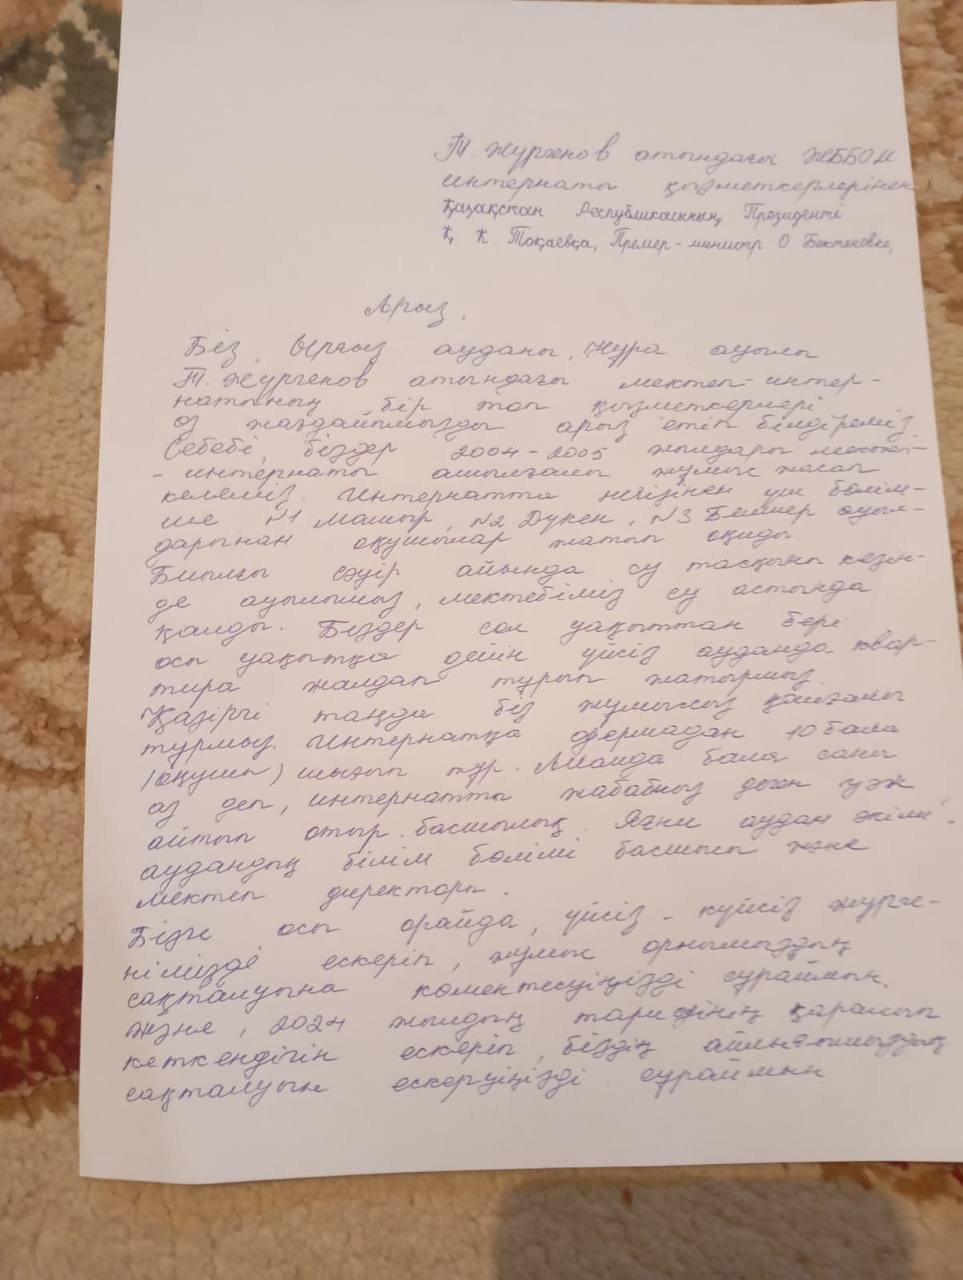 Т Жүргенов атындағы ЖББОМ
интернаты қызметкерлерінен
Қазақстан Республикасының Президенті
Қ. К. Тоқаевқа, Премер-министр О. Бектеновке,
Арыз.
Біз, Ырғыз ауданы, Нұра ауылы
Т. Жүргенов атындағы мектеп-интер-
натының бір топ қызметкерлері
өз жағдайымызды арыз етіп білдіреміз.
Себебі, біздер 2004-2005 жылдары мектеп-
- интернаты ашылғалы жұмыс жасап
келеміз. Интернатта негізінен үш бөлім-
ше №1 Мамыр, №2 Дүкен, №3 Белшер ауыл-
дарынан оқушылар жатып оқиды.
Биылғы сәуір айында су тасқыны кезін-
де ауылымыз, мектебіміз су астында
қалды. Біздер сол уақыттан бері
осы уақытқа дейін үйсіз ауданда квар-
тира жалдап тұрып жатырмыз.
Қазіргі таңда біз жұмыссыз қалғалы
тұрмыз. Интернатқа формадан 10 бала
(оқушы) шығып тұр. Алайда бала саны
аз деп, интернатты жабабыз деген уәж
айтып отыр басшылық. Яғни аудан әкімі,
аудандық білім бөлімі басшысы және
мектеп директоры.
Бізге осы орайда, үйсіз-күйсіз жүрге-
німізде ескеріп, жұмыс орнымыздың
сақталуына көмектесуіңізді сұраймын.
Және, 2024 жылдың қаралып
кеткендігін ескеріп, біздің айлығымыздың
сақталуын ескеруіңізді сұраймын